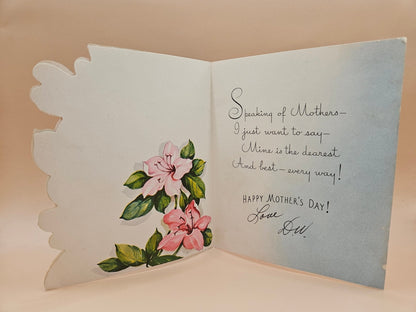 Speaking of Mothers—
I just want to say—
Mine is the dearest
And best—every way!
HAPPY MOTHER'S DAY!
Love